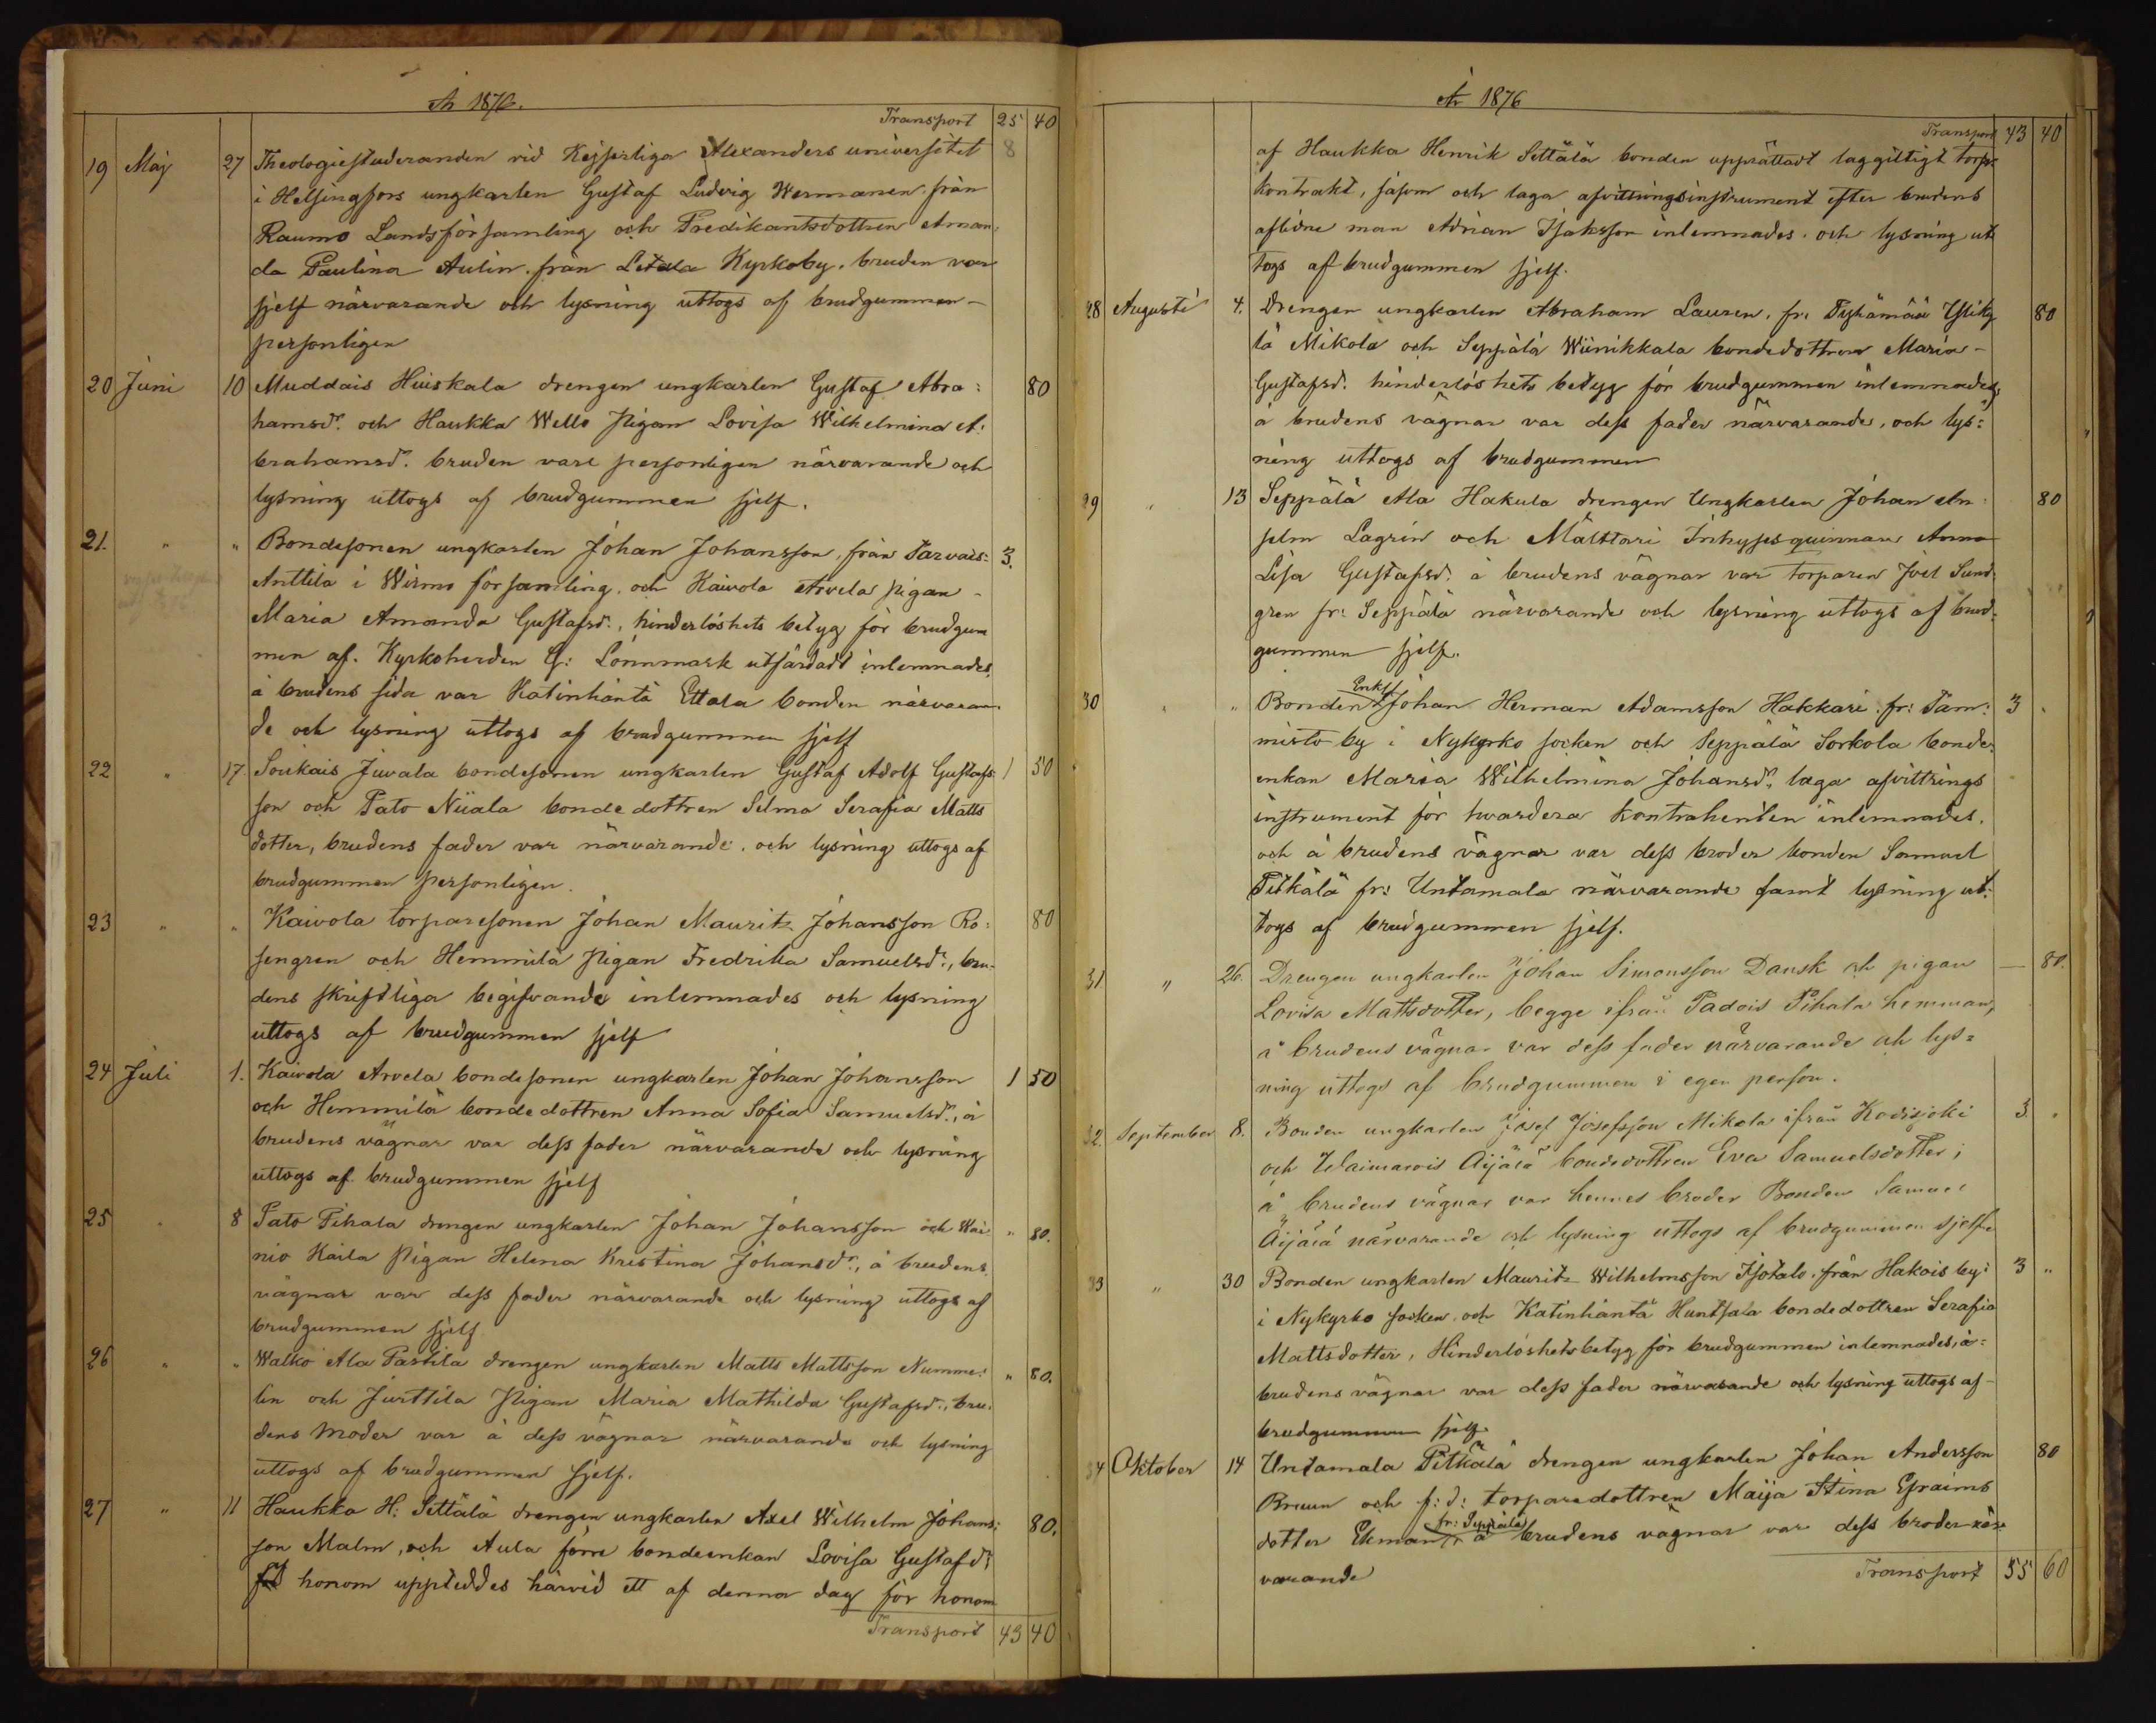 År 1876.
Transport 25 40
19 Maj 27 Theologiestuderanden vid Kejserliga Alexanders universitet 8
i Helsingfors ungkarlen Gustaf Ludvig Wermanen från
Raumo Landsförsamling och Predikantsdottren Aman-
da Paulina Aulin från Letala Kyrkoby. bruden var
sjelf närvarande och lysning uttogs af brudgummen –
personligen
20 Juni 10 Muddais Huiskala drengen ungkarlen Gustaf Abra= 80
hamsd: och Haukka Wello Pigan Lovisa Wilhelmina A:
brahamsd: bruden vare personligen närvarande och
lysning uttogs af brudgummen sjelf.
21. " " Bondesonen ungkarlen Johan Johansson, från Tarvais= 3.
Anttila i Wirmo församling. och Kaivola Arvela pigan –
Maria Amanda Gustafsd:, hinderlöshets betyg för brudgum
men af. Kyrkoherden G: Lönnmark utfärdadt inlemnades,
å brudens sida var Katinhäntä Ettala bonden närvaran-
de och lysning uttogs af brudgummen sjelf
22 " 17 Soukais Juvala bondesonen ungkarlen Gustaf Adolf Gustafs 1 50
son och Pato Niiala bondedottren Selma Serafia Matts
dotter, brudens fader var närvarande. och lysning uttogs af
brudgummen personligen.
23 " " Kaivola torparesonen Johan Mauritz Johansson Ro= 80
sengren och Hemmilä Pigan Fredrika Samuelsd:, bru-
dens skriftliga begifvande inlemnades och lysning
uttogs af brudgummen sjelf
24 Juli 1. Kaivola Arvela bondesonen ungkarlen Johan Johansson 1 50
och Hemmilä bondedottren Anna Sofia Samuelsd:, å
brudens vägnar var dess fader närvarande och lysning
uttogs af brudgummen sjelf
25 " 8 Pato Pihala drengen ungkarlen Johan Johansson och Wai " 80.
nio Kaila Pigan Helena Kristina Johansd:, å brudens
vägnar var dess fader närvarande och lysning uttogs af
brudgummen sjelf
26 " " Walko Ala Pastila drengen ungkarlen Matts Mattsson Numme: " 80.
lin och Jurttila Pigan Maria Mathilda Gustafsd:, bru-
dens Moder var å dess vägnar närvarande och lysning
uttogs af brudgummen sjelf.
27 " 11 Haukka H: Settälä drengen ungkarlen Axel Wilhelm Johans; 80.
son Malm, och Aula förre bondeenkan Lovisa Gustafsd:
af honom uppteddes härvid ett af denna dag för honom
Transport 43 40
År 1876
Transport 43 40
af Haukka Henrik Settälä bonden upprättadt laggiltigt torp-
kontrakt, såsom och laga afvittringsinstrument efter brudens
aflidne man Adrian Isaksson inlemnades. och lysning ut
togs af brudgummen sjelf.
28 Augusti 4. Drengen ungkarlen Abraham Lauren, fr: Pyhämaa
lä Mikola och Seppälä Wiinikkala bondedottren Maria –
Gustafsd: hinderlöshets betyg för brudgummen inlemnades, 80
å brudens vägnar var dess fader närvarande, och lys=
ning uttogs af brudgummen
29 " 13 Seppälä Ala Hakula drengen Ungkarlen Johan An 80
selm Lagrin och Mälttari Inhysesquinnan Anna
Lisa Gustafsd: å brudens vägnar var torparen Joel Sund-
gren fr: Seppälä närvarande och lysning uttogs af brud-
gummen sjelf.
30 " " Bonden Enkl Johan Herman Adamsson Hakkari fr: Tam: 3 "
misto by i Nykyrko socken och Seppälä Sorkola bonde-
enkan Maria Wilhelmina Johansd: laga afvittrings
instrument för hvardera kontrahenten inlemnades.
och å brudens vägnar var dess broder bonden Samuel
Pitkälä fr: Untamala närvarande samt lysning ut-
togs af brudgummen sjelf.
31 " 26. Drengen ungkarlen Johan Simonsson Dansk och pigan — 80.
Lovisa Mattsdotter, begge ifrån Padois Pihala hemman,
å brudens vägnar var dess fader närvarande och lys=
ning uttogs af brudgummen i egen person.
32. September 8. Bonden ungkarlen Josef Josefsson Mikola ifrån Kodisjoki 3. "
och Waimarois Äijälä bondedottren Eva Samuelsdotter;
å brudens vägnar var hennes broder Bonden Samuel
Äijälä närvarande och lysning uttogs af brudgummen sjelf
33 " 30 Bonden ungkarlen Mauritz Wilhelmsson Isotalo från Hakois by: 3 "
i Nykyrko socken. och Katinhäntä Huntsala bondedottren Serafia
Mattsdotter, Hinderlöshets betyg för brudgummen inlemnades, å=
brudens vägnar var dess fader närvarande och lysning uttogs af –
brudgummen sjelf
34 Oktober 14 Untamala Pitkälä drengen ungkarlen Johan Andersson 80
Bruun och f: d: torparedottren Maija Stina Efraims
dotter Ekman fr: Seppälä å brudens vägnar var dess broder när-
varande
Transport 55 60